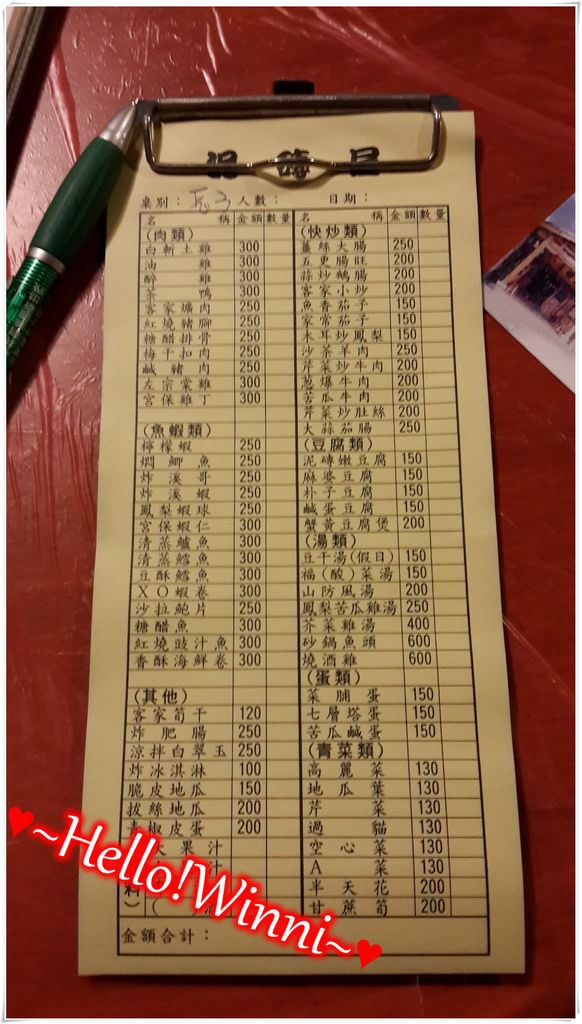 泥磚屋
桌別： 人數： 日期：
名 稱 金額 數量
（肉類）
白斬土雞 300
油 雞 300
醉 雞 300
茶 鴨 300
客家爌肉 250
紅燒豬腳 250
糖醋排骨 250
梅干扣肉 250
鹹豬肉 250
左宗棠雞 300
宮保雞丁 300
（魚蝦類）
檸檬蝦 250
燜鯽魚 250
炸溪哥 250
炸溪蝦 250
鳳梨蝦球 250
宮保蝦仁 300
清蒸鱸魚 300
清蒸鱈魚 300
豆酥鱈魚 300
XO蝦卷 300
沙拉鮑片 250
糖醋魚 300
紅燒豉汁魚 300
香酥海鮮卷 300
（其他）
客家筍干 120
炸肥腸 250
涼拌白翠玉 250
炸冰淇淋 100
脆皮地瓜 150
拔絲地瓜 200
青椒皮蛋 200
大果汁
汁
料）
名 稱 金額 數量
（快炒類）
薑絲大腸 250
五更腸旺 200
蒜炒鵝腸 200
客家小炒 200
魚香茄子 150
家常茄子 150
木耳炒鳳梨 150
沙茶羊肉 250
芹菜炒牛肉 200
蔥爆牛肉 200
苦瓜牛肉 200
芹菜炒肚絲 200
大蒜茄腸 250
（豆腐類）
泥磚嫩豆腐 150
麻婆豆腐 150
朴子豆腐 150
鹹蛋豆腐 150
蟹黃豆腐煲 200
（湯類）
豆干湯(假日) 150
福(酸)菜湯 150
山防風湯 200
鳳梨苦瓜雞湯 250
芥菜雞湯 400
砂鍋魚頭 600
燒酒雞 600
（蛋類）
菜脯蛋 150
七層塔蛋 150
苦瓜鹹蛋 150
（青菜類）
高麗菜 130
地瓜葉 130
芹 菜 130
過 貓 130
空心菜 130
A 菜 130
半天花 200
甘蔗筍 200
金額合計：
♥~Hello!Winni~♥